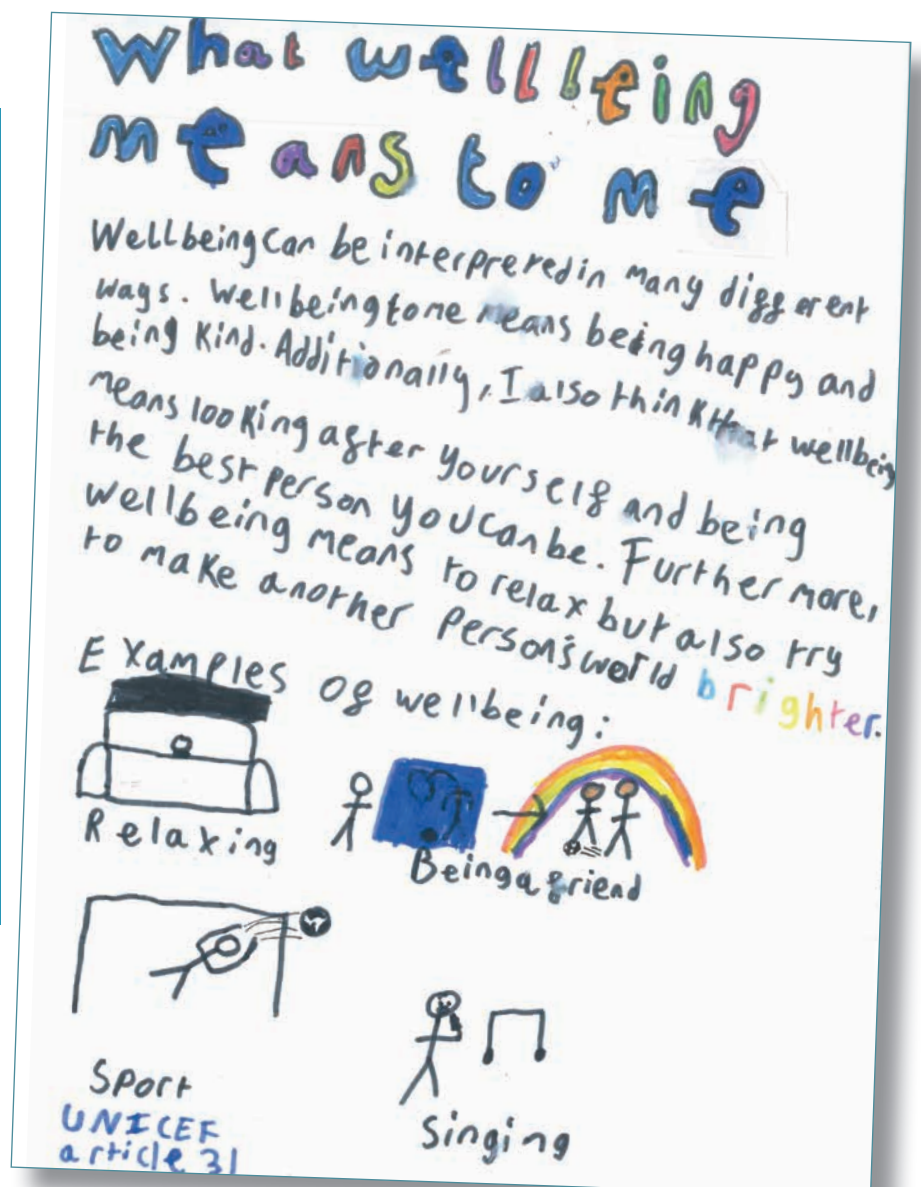 What wellbeing
means to me
Wellbeing can be interprered in many different
ways. Wellbeing to me means being happy and
being Kind. Additionally, I also think that wellbeing
means looking after yourself and being
the best person you can be. Further more,
wellbeing means to relax but also try
to make another person's world brighter.
Examples of wellbeing:
Relaxing
Being a friend
Sport
Singing
UNICEF
article 31